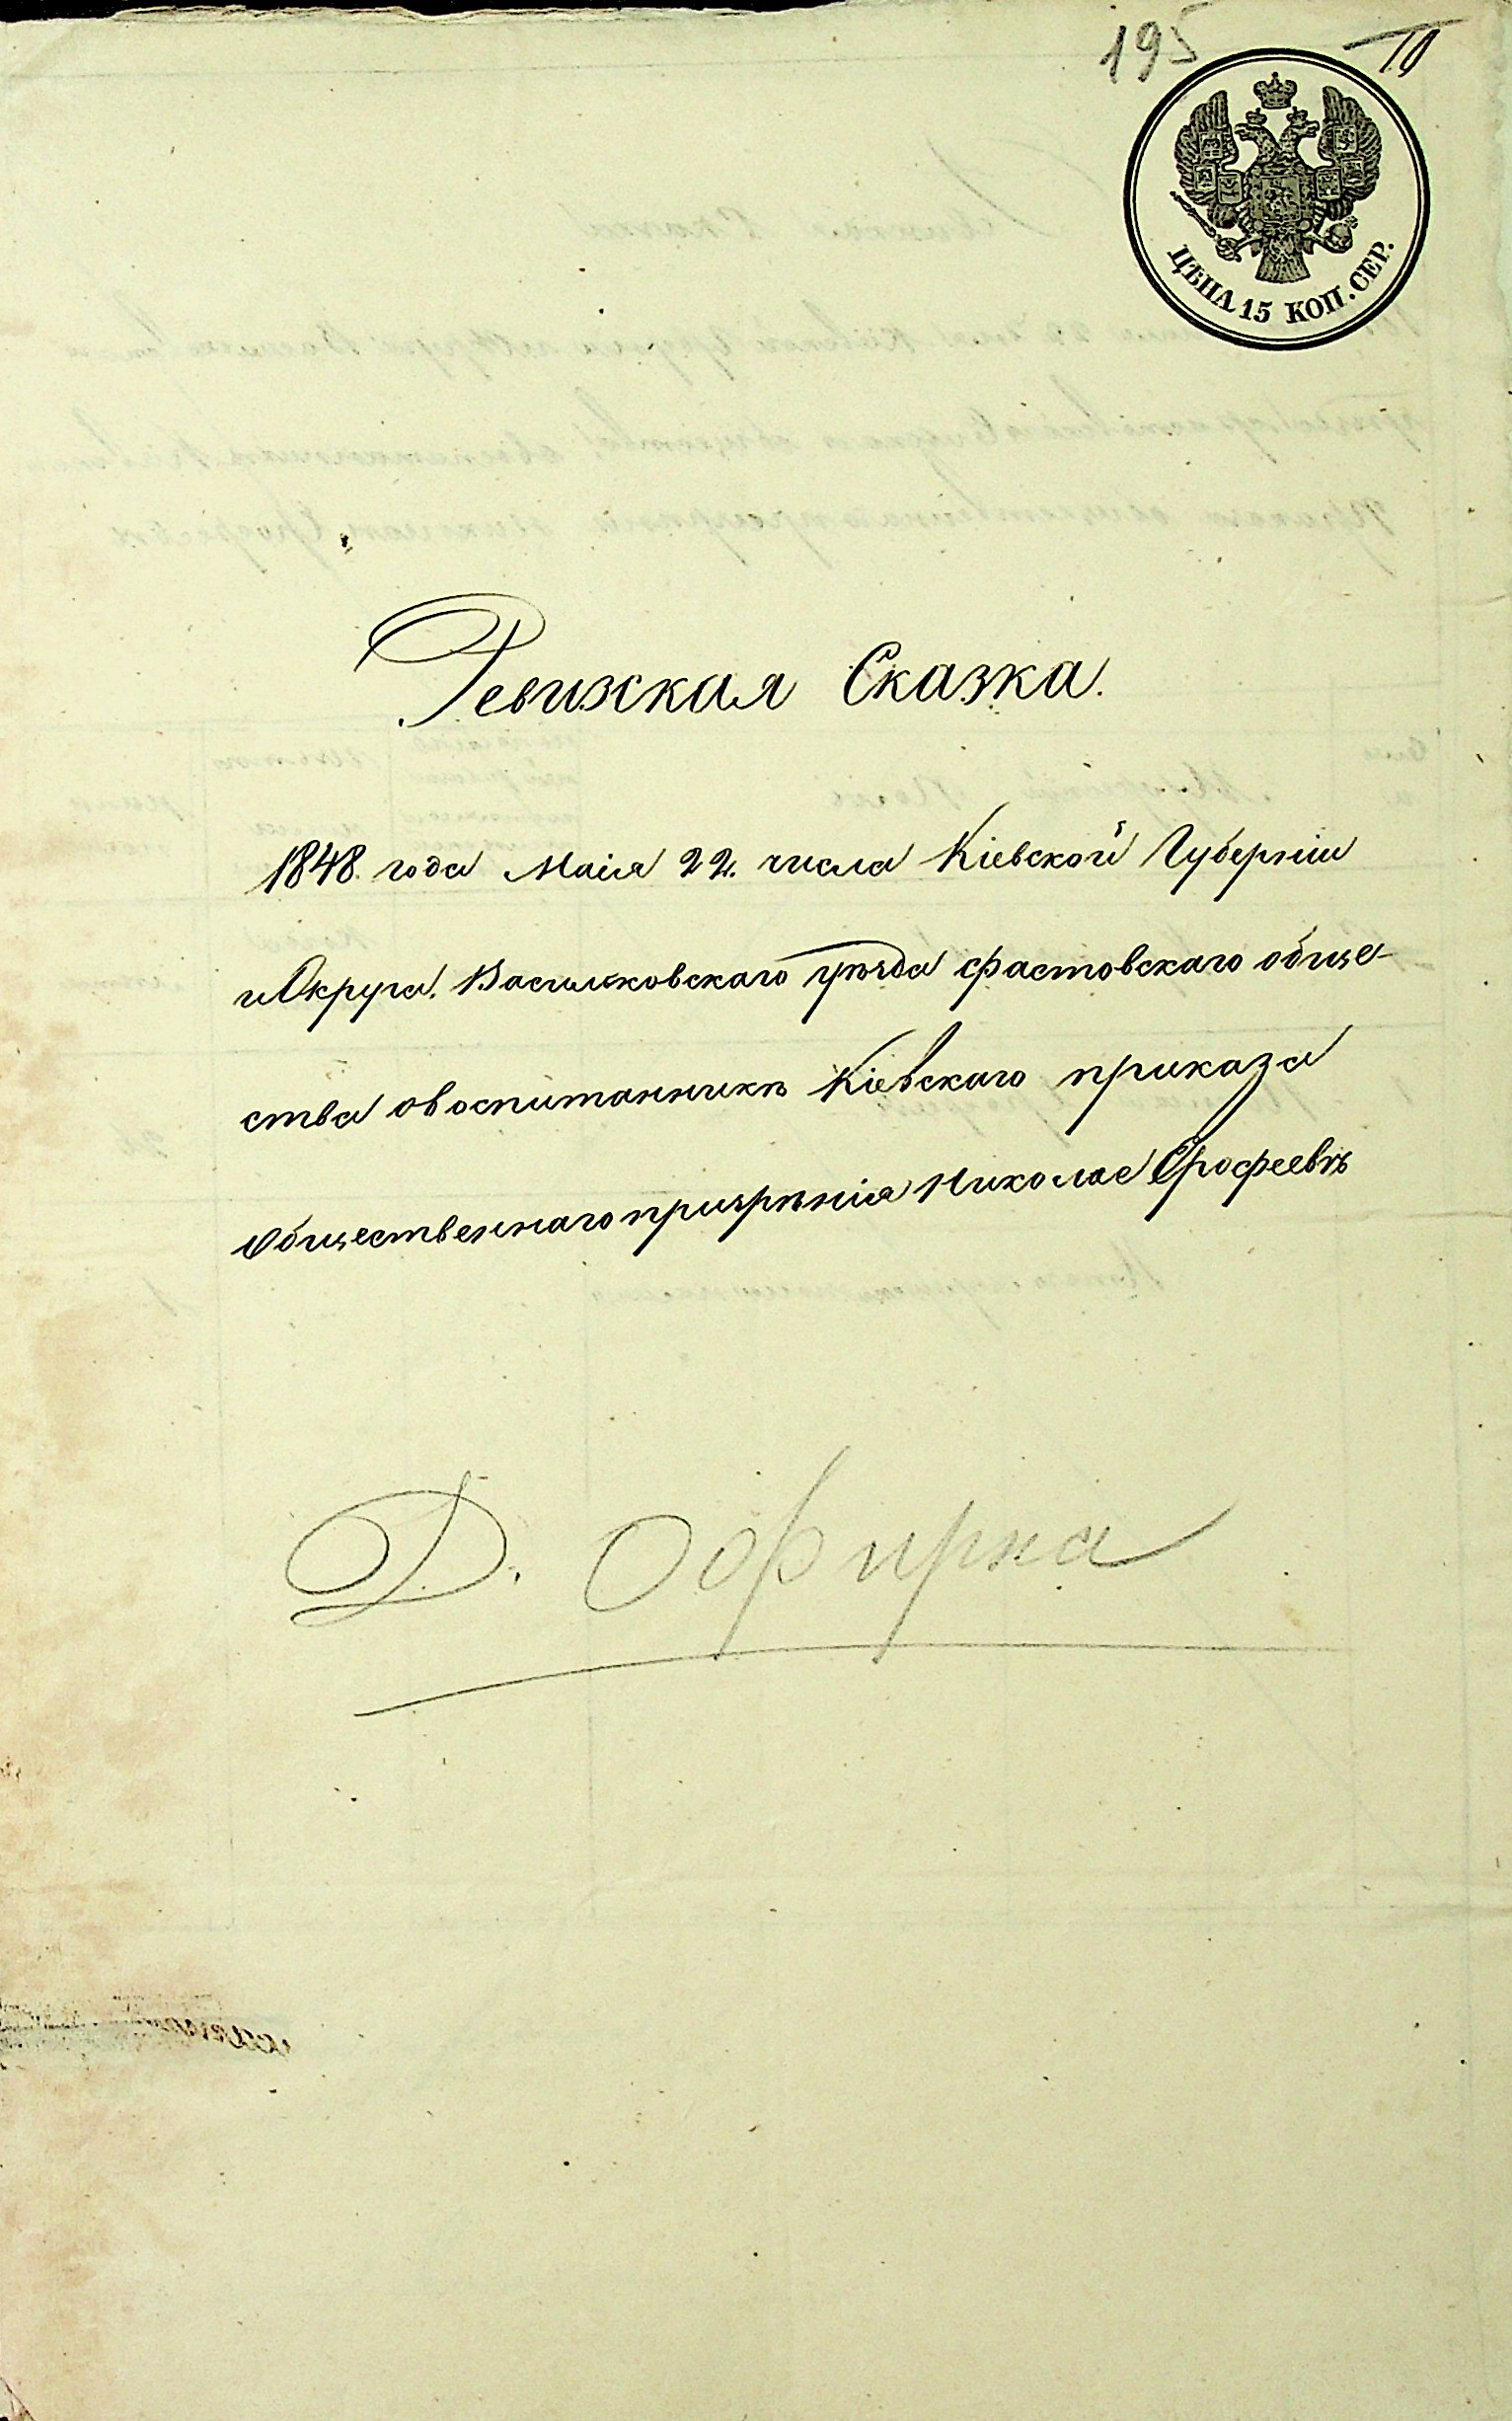 195
ЦѢНА 15 КОП. СЕР.
Ревизкая Сказка.
1848. года Маія 22. числа Кіевской Губерніи
и Округа. Васильковскаго уѣзда фастовскаго обще-
ства овоспитанникѣ Кіевскаго приказа
Общественнаго призрѣнія Николае Ерофеевѣ
Д. Офирна